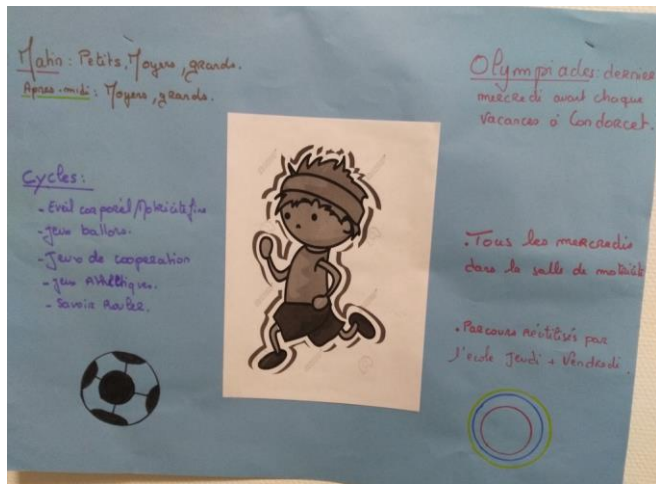 Matin : Petits, Moyens, grands.
Après-midi : Moyens, grands.
Cycles :
- Eveil corporel/Motricité fine
- jeux ballons.
- Jeux de cooperation
- jeux Athlétiques.
- Savoir Rouler.
Olympiades : dernier
mercredi avant chaque
vacances à Condorcet.
. Tous les mercredis
dans la salle de motricité
. Parcours réutilisés par
l'école Jeudi + Vendredi.